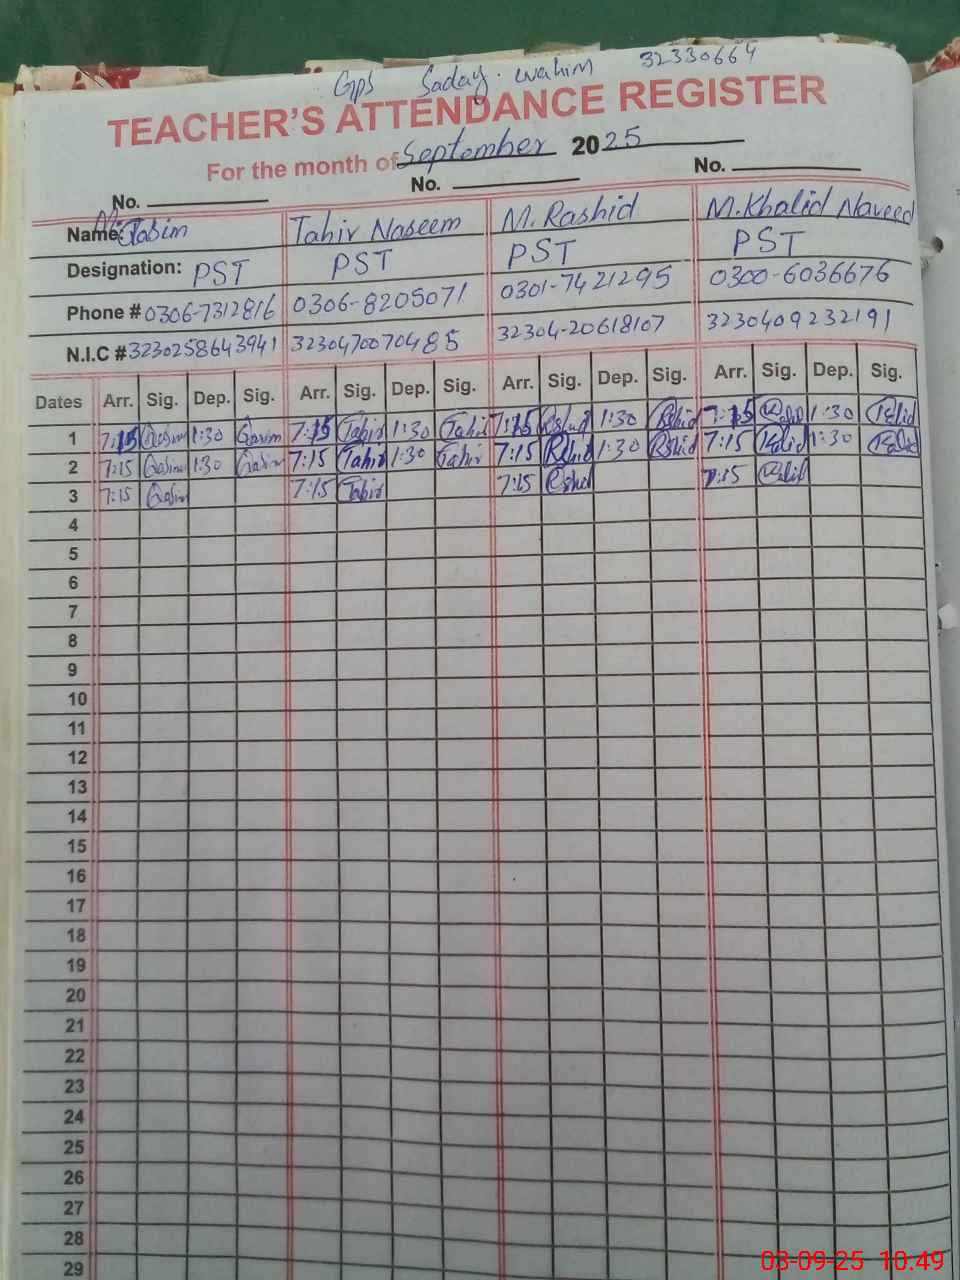 GPS Saday wahim 32330664
TEACHER'S ATTENDANCE REGISTER
For the month of September 2025
No. No. No.
Name: M. Qasim Tahir Naseem M. Rashid M. Khalid Naveed
Designation: PST PST PST PST
Phone # 0306-7312816 0306-8205071 0301-7421295 0300-6036676
N.I.C # 3230258643941 3230470070485 32304-20618107 3230409232191
Dates Arr. Sig. Dep. Sig. Arr. Sig. Dep. Sig. Arr. Sig. Dep. Sig. Arr. Sig. Dep. Sig.
1 7:15 Qasim 1:30 Qasim 7:15 Tahir 1:30 Tahir 7:15 Rshid 1:30 Rshid 7:15 1:30
2 7:15 Qasim 1:30 Qasim 7:15 Tahir 1:30 Tahir 7:15 Rshid 1:30 Rshid 7:15 1:30
3 7:15 Qasim 7:15 Tahir 7:15 Rshid 7:15
4
5
6
7
8
9
10
11
12
13
14
15
16
17
18
19
20
21
22
23
24
25
26
27
28
29
03-09-25 10:49